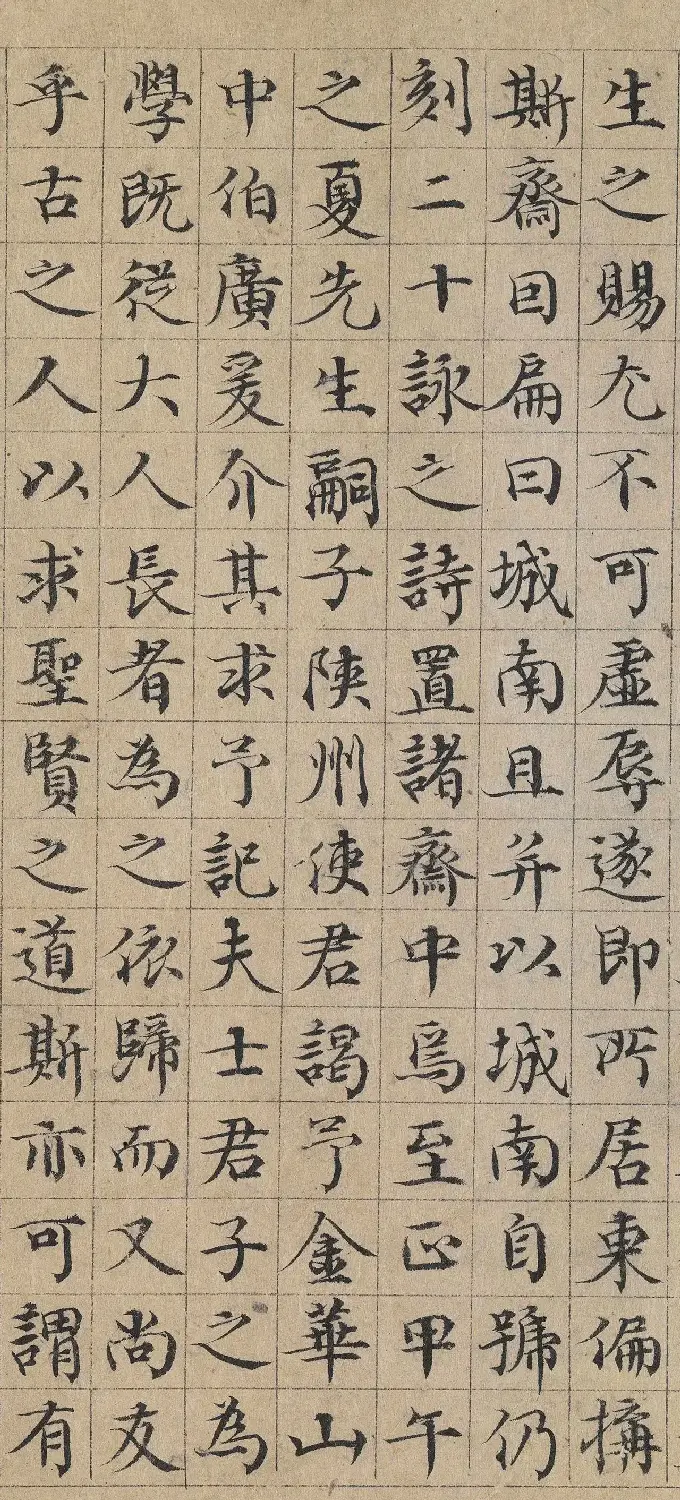 生之賜尤不可虛辱遂即所居東偏搆
斯齋因扁曰城南且并以城南自號仍
刻二十詠之詩置諸齋中焉至正甲午
之夏先生嗣子陝州使君謁予金華山
中伯廣爰介其求予記夫士君子之為
學既從大人長者為之依歸而又尚友
乎古之人以求聖賢之道斯亦可謂有